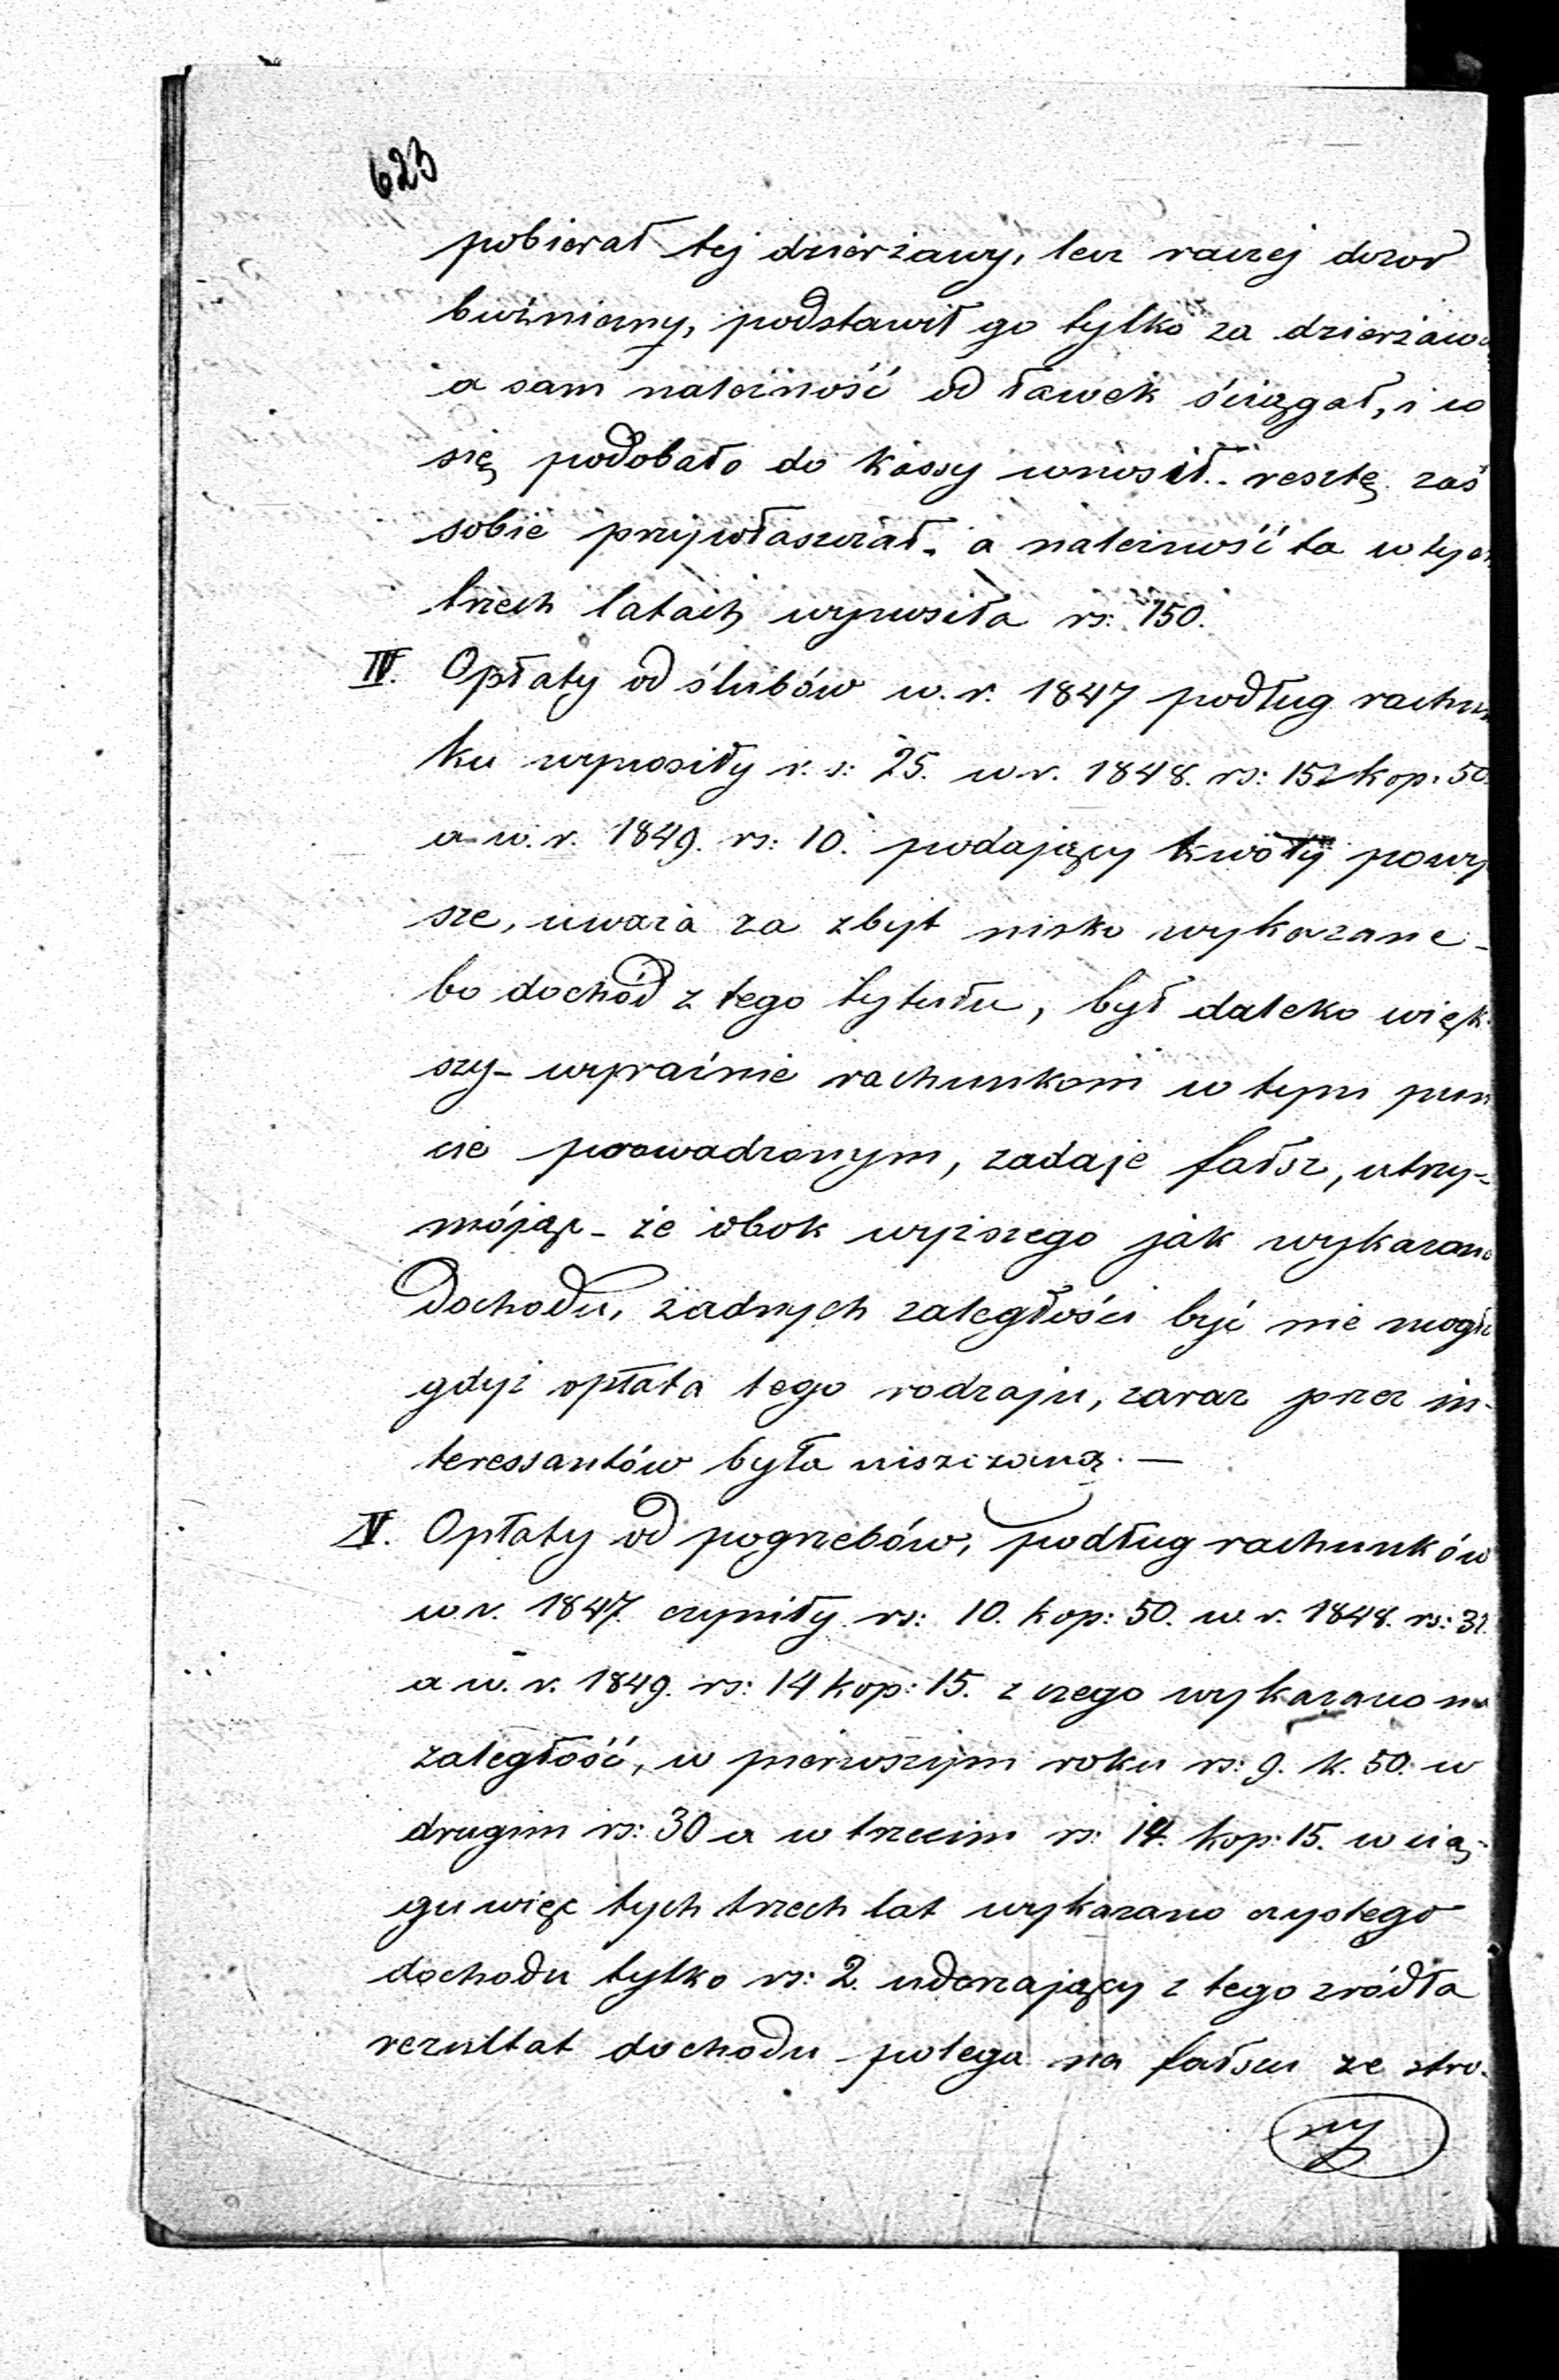 623
pobierał tej dzierżawy, lecz raczej dozor
bużniczny, podstawił go tylko za dzierżawc
a sam należność od ławek ściągał, i co
się podobało do kassy wnosił.- resztę zaś
sobie przywłaszczał. a należność ta w tych
trzech latach wynosiła rs: 150.
IV. Opłaty od ślubów w. r. 1847 podług rachun
ku wynosiły r. s: 25. w r. 1848. rs: 152 kop. 50.
a w. r. 1849. rs: 10. podający kwoty powy
sze, uważa za zbyt nisko wykazane -
bo dochód z tego tytułu, był daleko więk
szy - wyraźnie rachunkom w tym pun
cie prowadzonym, zadaje fałsz, utrzy-
mójąc - że obok wyższego jak wykazano
dochodu, żadnych zaległości być nie mogło
gdyż opłata tego rodzaju, zaraz przez in-
teressantów była uiszczaną. —
V. Opłaty od pogrzebów, podług rachunków
w r. 1847. czyniły rs: 10. kop: 50. w. r. 1848. rs: 32.
a w. r. 1849. rs: 14 kop: 15. z czego wykazano na
zaległość, w pierwszym roku rs: 9. k. 50. w
drugim rs: 30 a w trzecim rs: 14. kop: 15. w cią-
gu więc tych trzech lat wykazano czystego
dochodu tylko rs: 2. uderzający z tego zródła
rezultat dochodu polega na fałszu ze stro-
ny